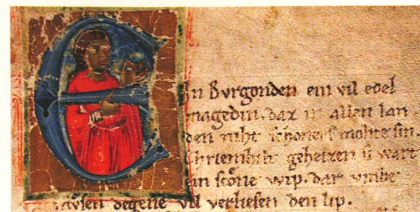 E n Burgonden ein vil edel
magedin. daz in allen lan
den niht schoners mohte sin.
Chriemhilt geheizen si wart
ein scone wip. dar umbe
degene vil verliesen den lip.